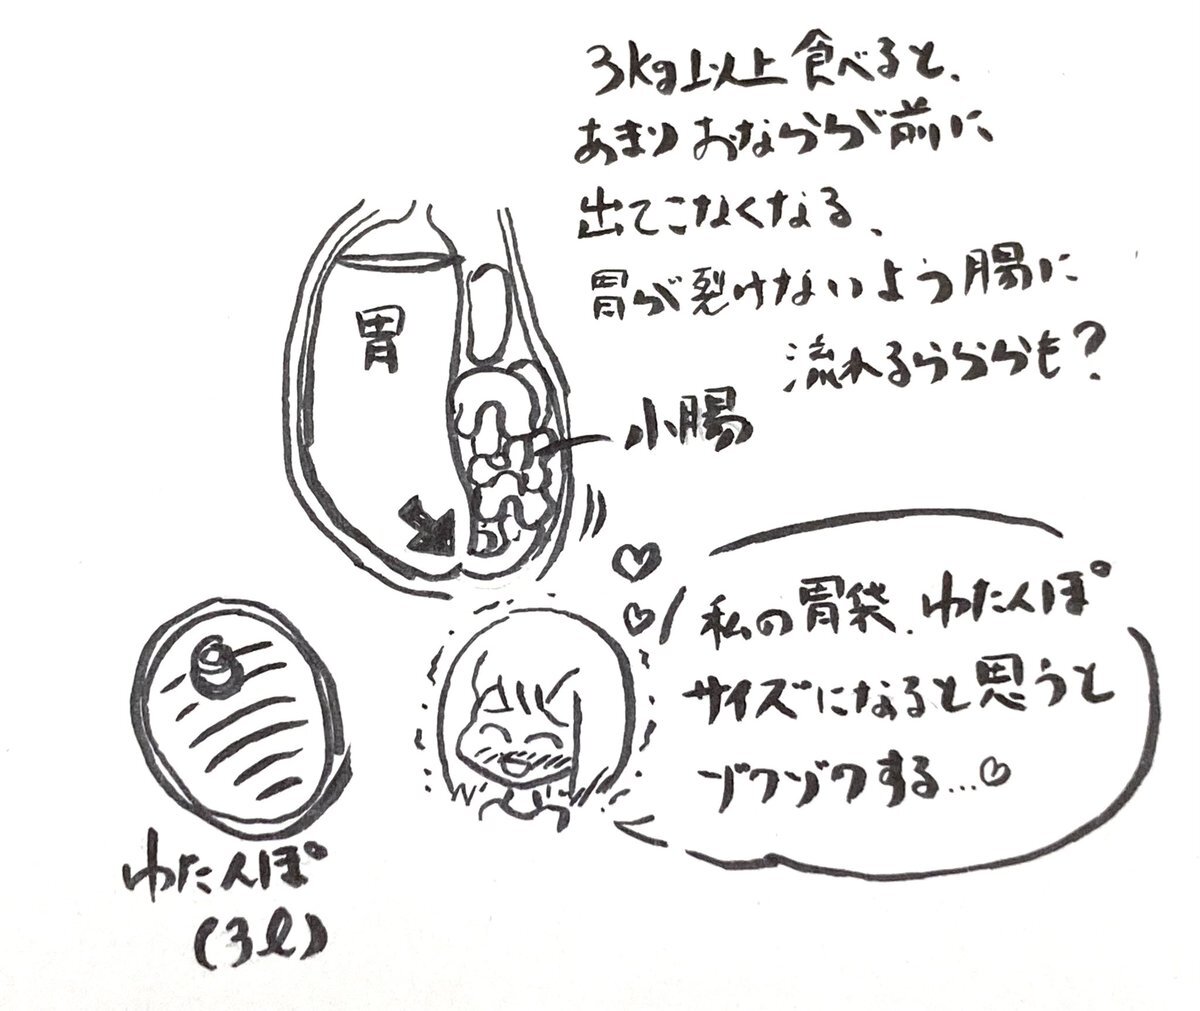 3kg以上食べると、
あまりおなかが前に
出てこなくなる、
胃が裂けないよう腸に
流れるからかも?
胃
小腸
私の胃袋、ゆたんぽ
サイズになると思うと
ゾクゾクする…♡
ゆたんぽ
(3ℓ)